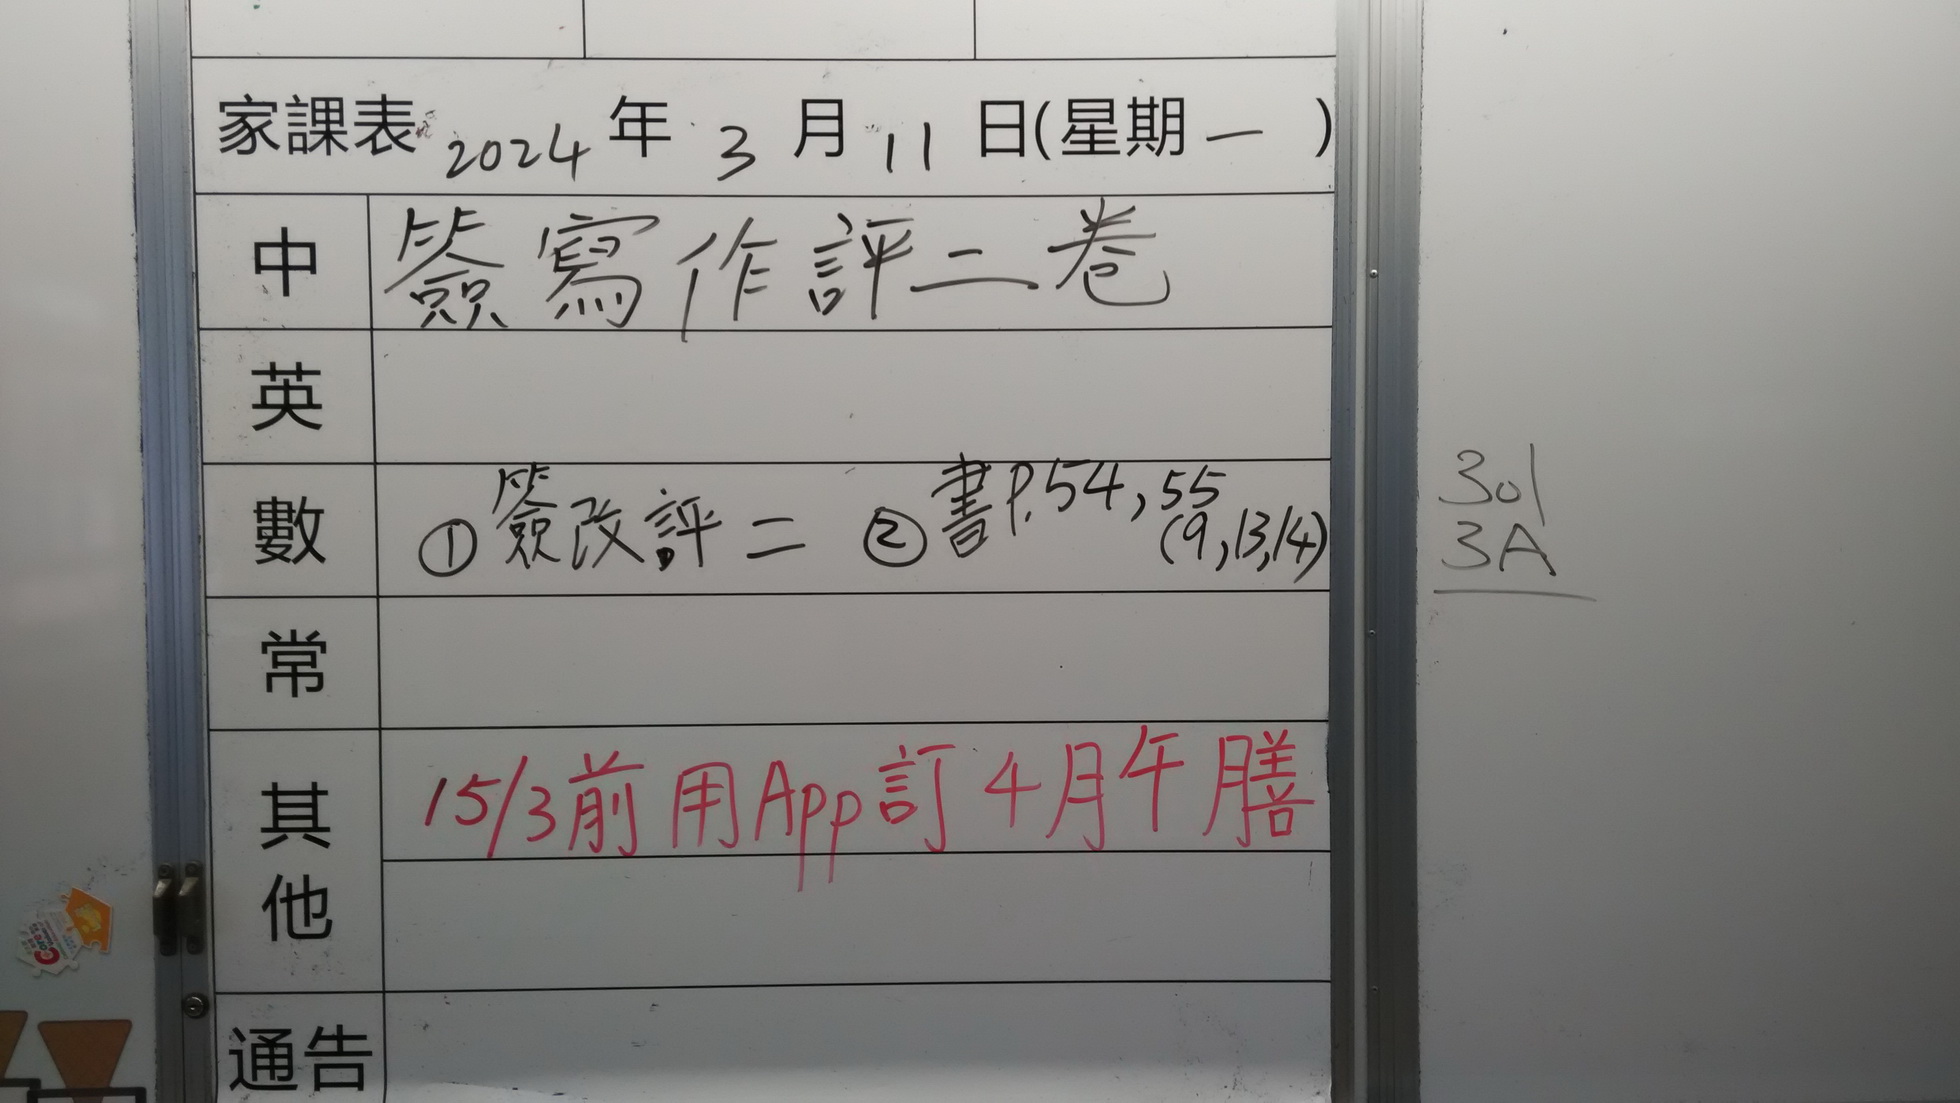 家課表 2024 年 3 月 11 日(星期一 )
中 簽寫作評二卷
英
數 ① 簽改評二 ② 書P.54,55
(9,13,14)
301
3A
常
其他 15/3前用App訂4月午膳
通告